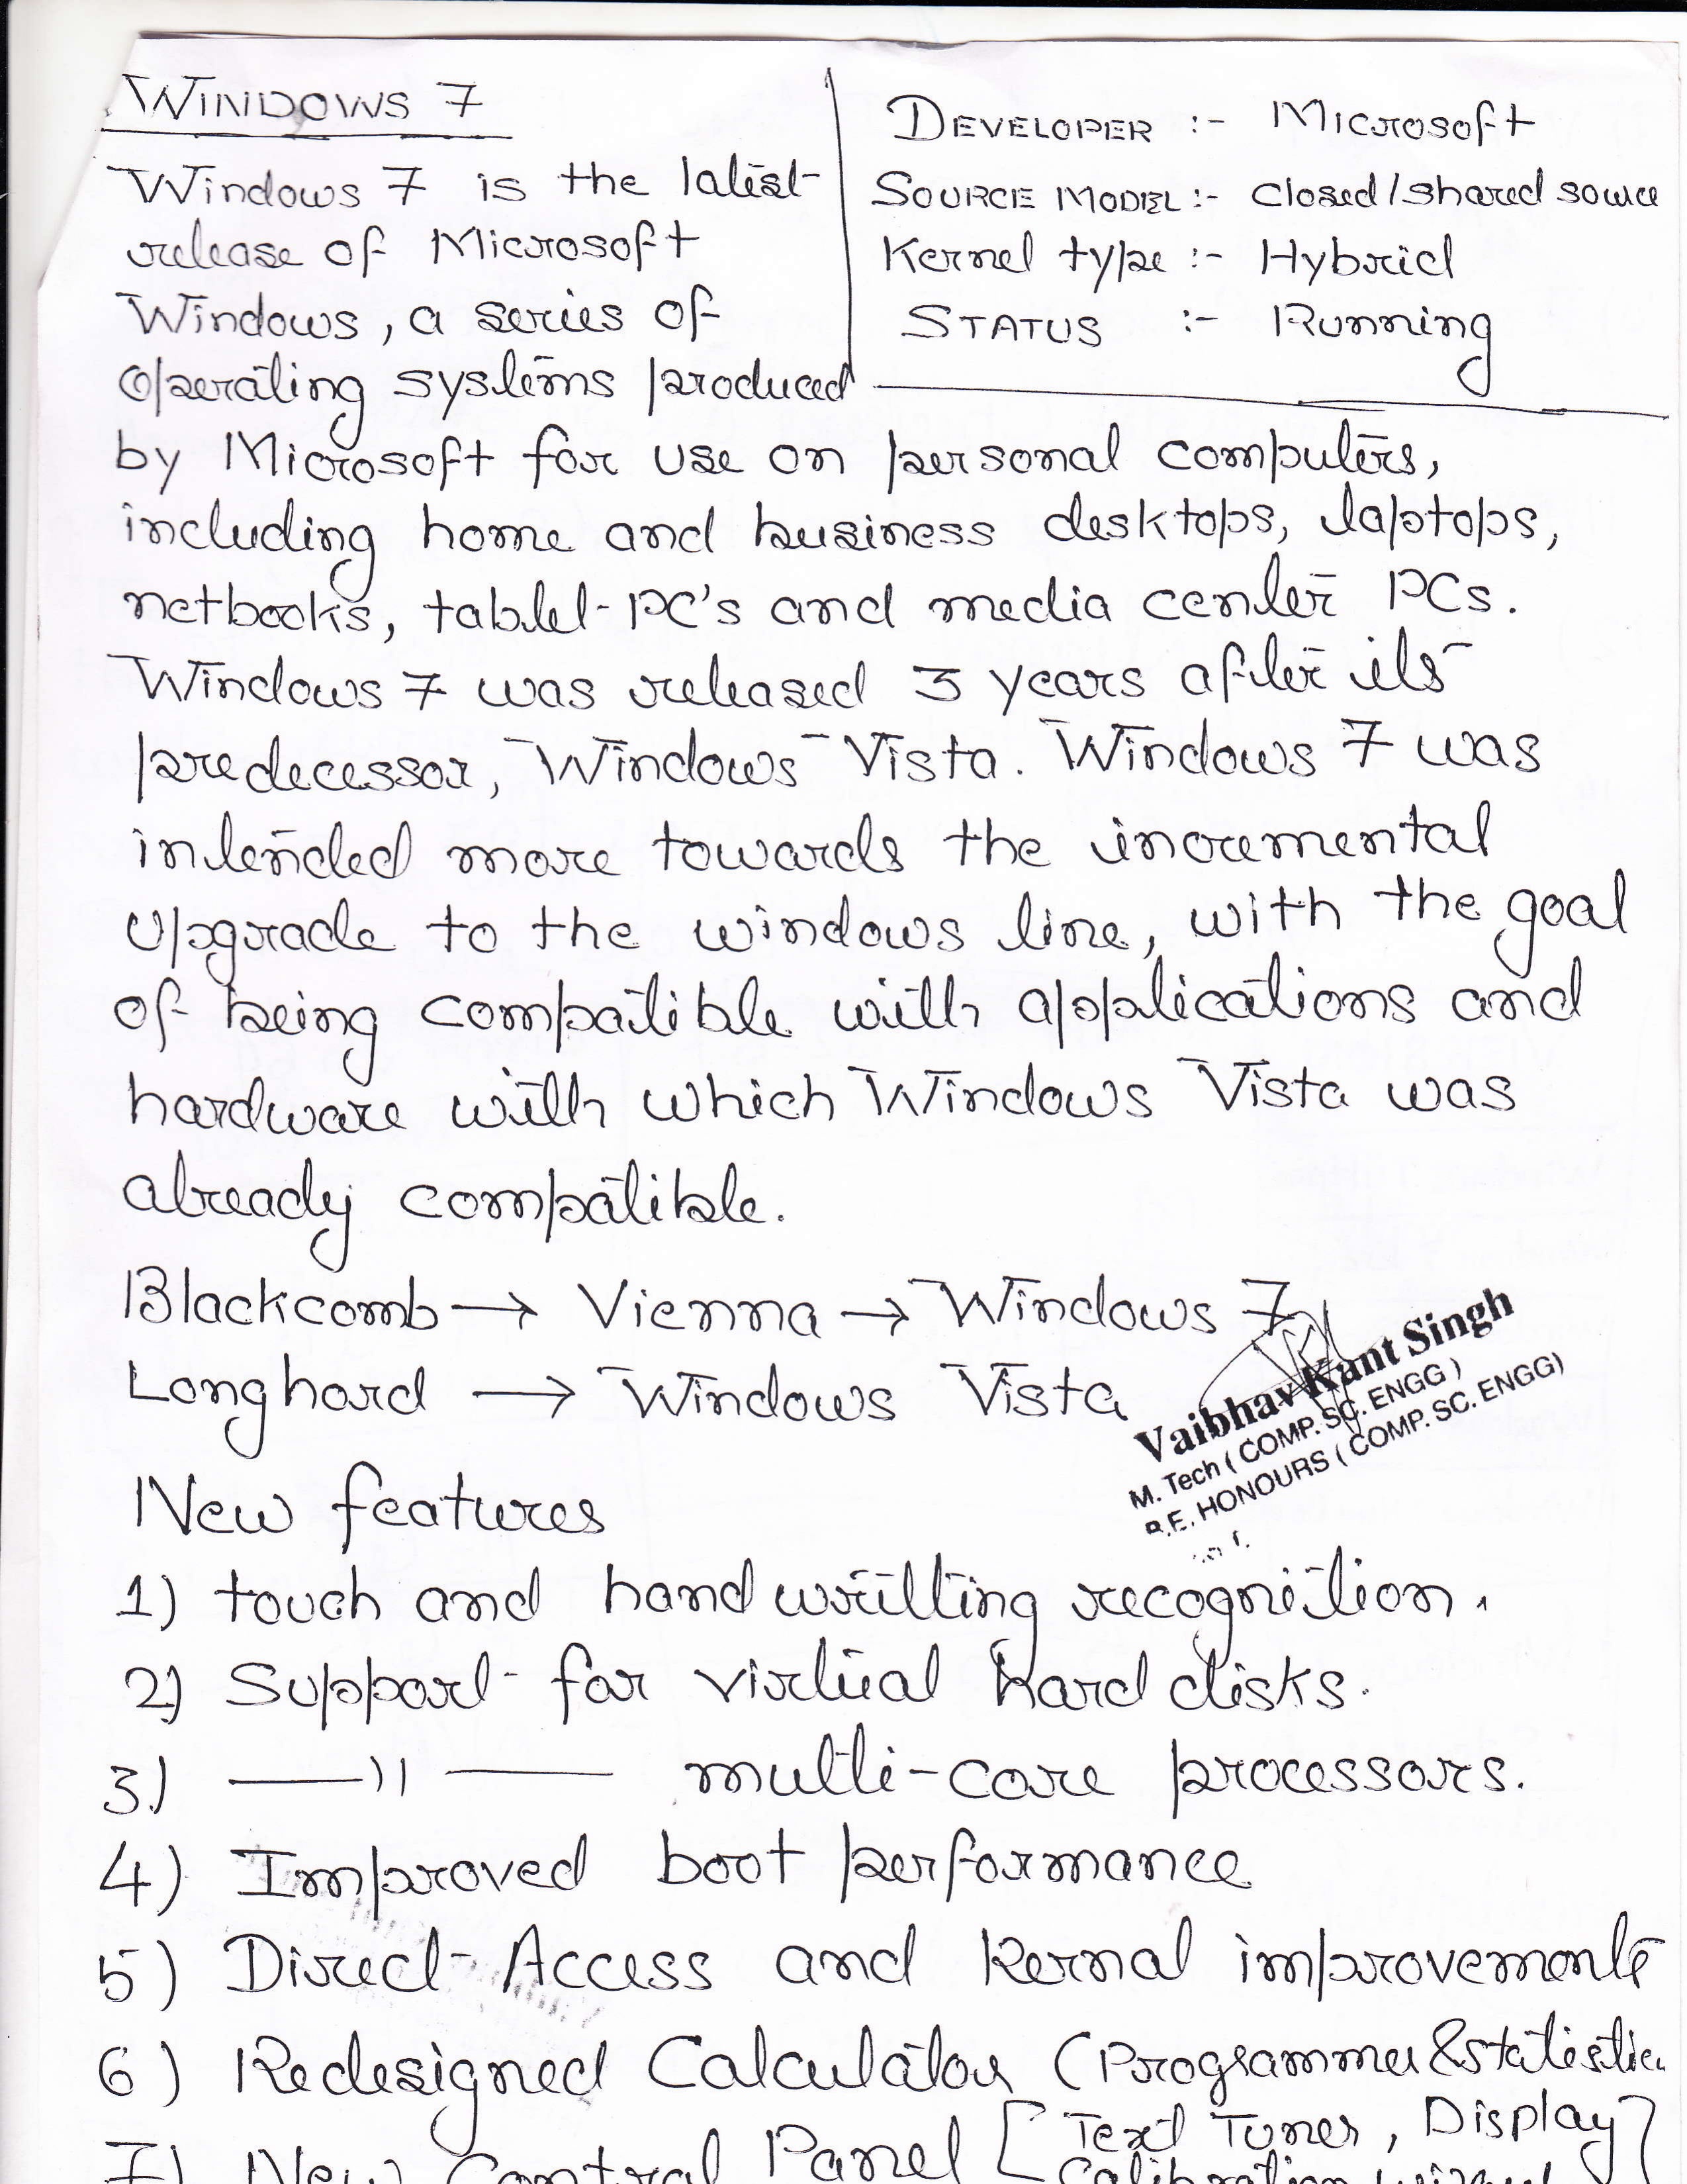 WINDOWS 7
Windows 7 is the latest
release of Microsoft
Windows, a series of
operating systems produced
DEVELOPER :- Microsoft
SOURCE MODEL :- Closed/shared source
Kernel type :- Hybrid
STATUS :- Running
by Microsoft for use on personal computers,
including home and business desktops, laptops,
netbooks, tablet-PC's and media center PCs.
Windows 7 was released 3 years after its
predecessor, Windows Vista. Windows 7 was
intended more towards the incremental
upgrade to the windows line, with the goal
of being compatible with applications and
hardware with which Windows Vista was
already compatible.
Blackcomb → Vienna → Windows 7
Longhord → Windows Vista
Vaibhav Kant Singh
M. Tech ( COMP. SC. ENGG )
B.E. HONOURS ( COMP. SC. ENGG)
New features
1) touch and handwritting recognition.
2) Support for virtual hard disks.
3) —— 11 —— multi-core processors.
4) Improved boot performance
5) Direct-Access and Kernal improvements
6) Redesigned Calculator (Programmer & Statistic
7) New Control Panel [Text Tuner, Display]
Calibration wizard